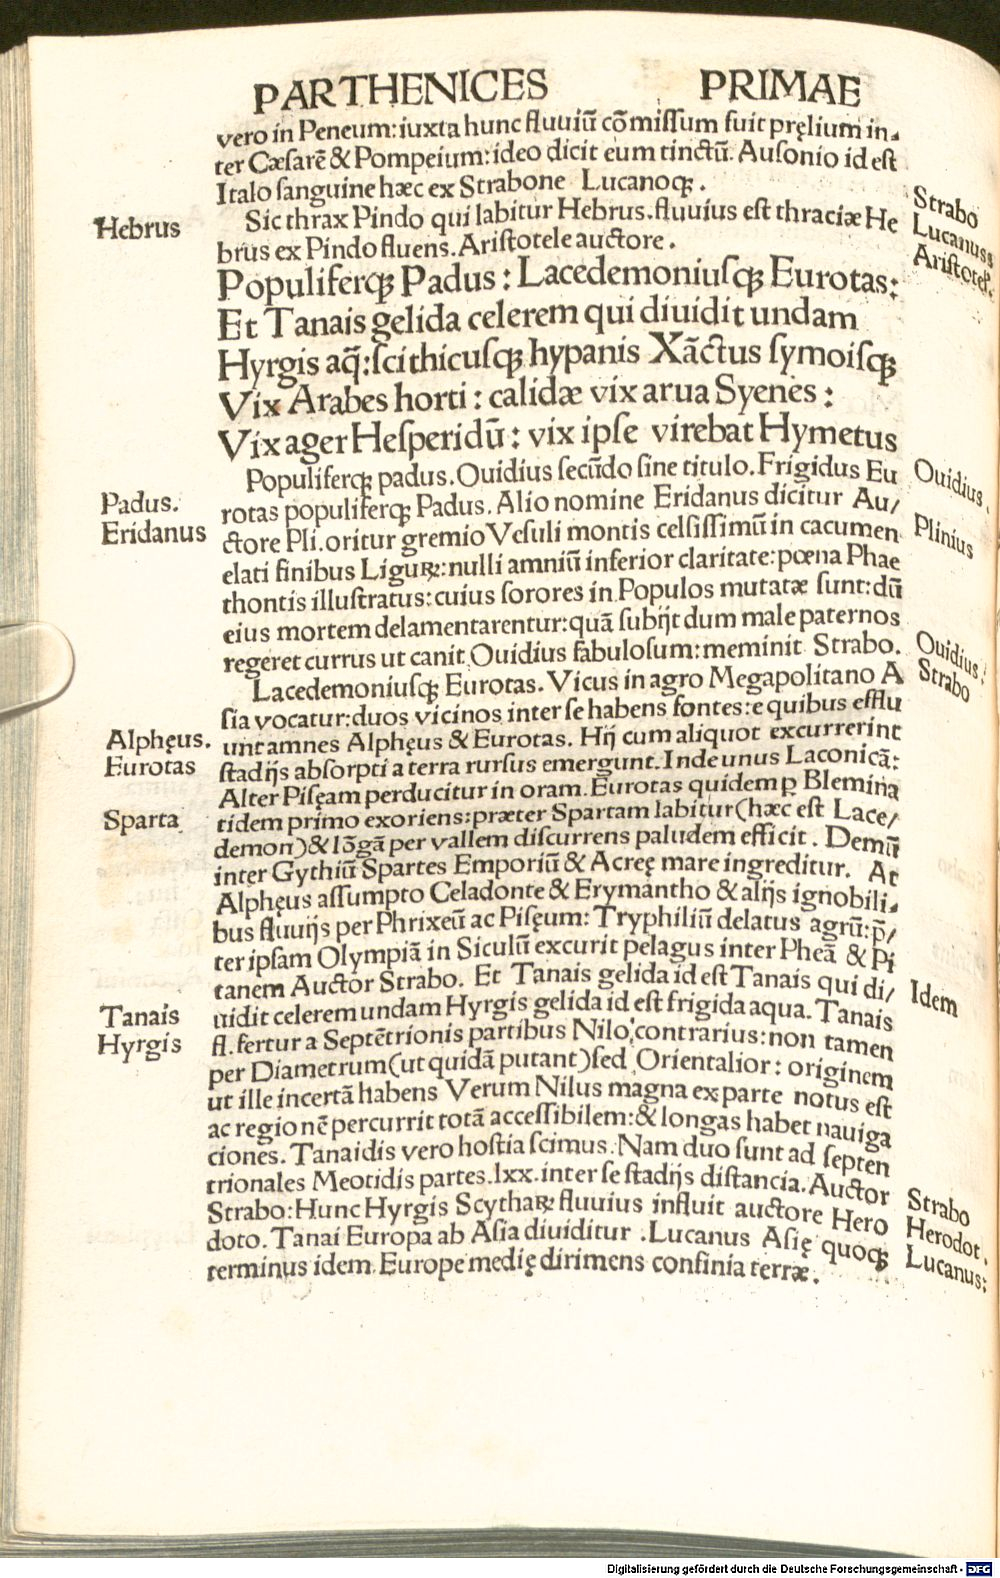 PARTHENICES PRIMAE
vero in Peneum: iuxta hunc fluuiū cōmiſſum fuit pręlium in-
ter Cæſarē & Pompeium: ideo dicit eum tinctū. Auſonio id eſt
Italo ſanguine hæc ex Strabone Lucanoqꝫ.
Strabo
Lucanus
Ariſtotel.
Hebrus
Sic thrax Pindo qui labitur Hebrus. fluuius eſt thraciæ He
brus ex Pindo fluens. Ariſtotele auctore.
Populiferqꝫ Padus: Lacedemoniuſqꝫ Eurotas:
Et Tanais gelida celerem qui diuidit undam
Hyrgis aq̄: ſcithicuſqꝫ hypanis Xāctus ſymoiſqꝫ
Vix Arabes horti: calidæ vix arua Syenes:
Vix ager Heſperidū: vix ipſe virebat Hymetus
Populiferqꝫ padus. Ouidius ſecūdo ſine titulo. Frigidus Eu
Ouidius.
Padus.
rotas populiferqꝫ Padus. Alio nomine Eridanus dicitur Au/
Eridanus
ctore Pli. oritur gremio Veſuli montis celſiſſimū in cacumen
Plinius
elati finibus Liguꝝ: nulli amniū inferior claritate: pœna Phae
thontis illuſtratus: cuius ſorores in Populos mutatæ ſunt: dū
eius mortem delamentarentur: quā ſubijt dum male paternos
regeret currus ut canit Ouidius fabuloſum: meminit Strabo.
Ouidius.
Strabo
Lacedemoniuſqꝫ Eurotas. Vicus in agro Megapolitano A
ſia vocatur: duos vicinos inter ſe habens fontes: e quibus efflu
Alphęus.
unt amnes Alphęus & Eurotas. Hij cum aliquot excurrerint
Eurotas
ſtadijs abſorpti a terra rurſus emergunt. Inde unus Laconicā:
Alter Piſęam perducitur in oram. Eurotas quidem ꝑ Blemina
Sparta
tidem primo exoriens: præter Spartam labitur (hæc eſt Lace/
demon) & lōgā per vallem diſcurrens paludem efficit. Demū
inter Gythiū Spartes Emporiū & Acreę mare ingreditur. At
Alphęus aſſumpto Celadonte & Erymantho & alijs ignobili-
bus fluuijs per Phrixeū ac Piſęum: Tryphiliū delatus agrū: p̄/
ter ipſam Olympiā in Siculū excurit pelagus inter Pheā & Pi
tanem Auctor Strabo. Et Tanais gelida id eſt Tanais qui di/
Idem
Tanais
uidit celerem undam Hyrgis gelida id eſt frigida aqua. Tanais
Hyrgis
fl. fertur a Septētrionis partibus Nilo contrarius: non tamen
per Diametrum (ut quidā putant) ſed Orientalior: originem
ut ille incertā habens Verum Nilus magna ex parte notus eſt
ac regionē percurrit totā acceſſibilem: & longas habet nauiga
ciones. Tanaidis vero hoſtia ſcimus. Nam duo ſunt ad ſepten
trionales Meotidis partes. lxx. inter ſe ſtadijs diſtancia. Auctor
Strabo: Hunc Hyrgis Scythaꝝ fluuius influit auctore Hero
Strabo
doto. Tanai Europa ab Aſia diuiditur. Lucanus Aſię quoqꝫ
Herodot.
terminus idem Europe medię dirimens confinia terræ.
Lucanus:
Digitalisierung gefördert durch die Deutsche Forschungsgemeinschaft - DFG